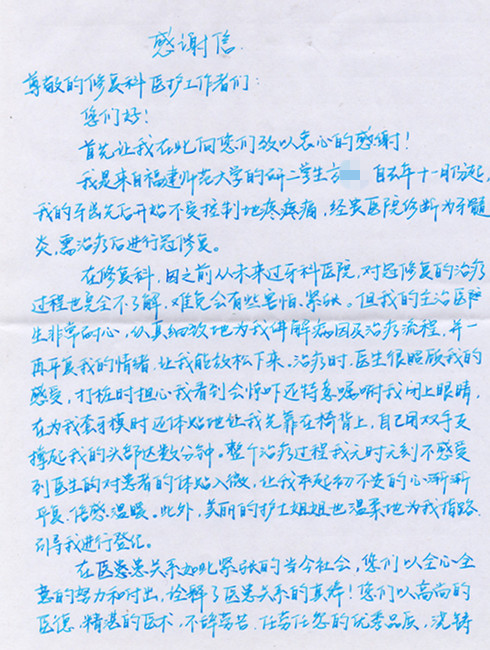 感谢信
尊敬的修复科医护工作者们:
您们好!
首先让我在此向您们致以衷心的感谢!
我是来自福建师范大学的研二学生 自去年十一月份起,
我的牙齿先后开始不受控制地疼痛,经贵医院诊断为牙髓
炎,需治疗后进行冠修复。
在修复科,因之前从未来过牙科医院,对冠修复的治疗
过程也完全不了解,难免会有些害怕、紧张。但我的主治医
生非常耐心,认真细致地为我讲解病因及治疗流程,并一
再平复我的情绪,让我能放松下来。治疗时,医生很照顾我的
感受,打桩时担心我看到会惊吓还特意嘱咐我闭上眼睛,
在为我套牙模时还体贴地让我先靠在椅背上,自己用双手支
撑起我的头部达数分钟。整个治疗过程我无时无刻不感受
到医生的对患者的体贴入微,让我本起初不安的心渐渐
平复、倍感温暖。此外,美丽的护士姐姐也温柔地为我指路,
引导我进行登记。
在医患关系如此紧张的当今社会,您们以全心全
意的努力和付出,诠释了医患关系的真谛!您们以高尚的
医德、精湛的医术,不辞劳苦、任劳任怨的优秀品质,浇铸